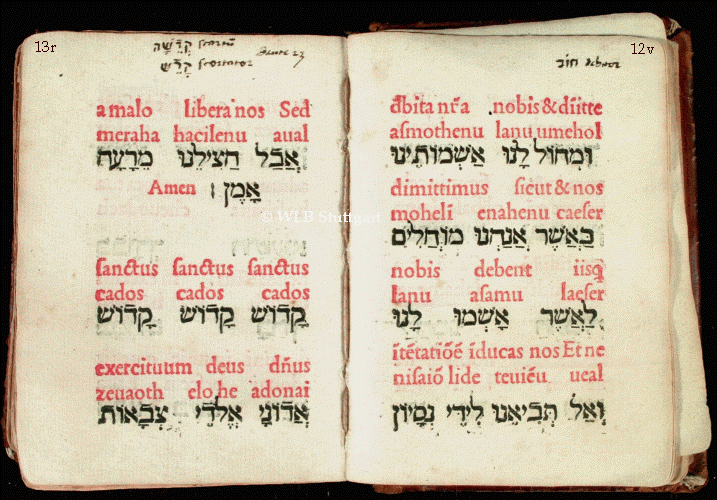 12v
חוֹב
đbita nr̃a nobis & dīitte
asmothenu lanu umehol
וּמְחוֹל לָנוּ אַשְׁמוֹתֵינוּ
dimittimus sicut & nos
moheli enahenu caeser
כַּאֲשֶׁר אֲנַחְנוּ מוֹחֲלִים
nobis debent iisq
lanu asamu laeser
לַאֲשֶׁר אָשְׁמוּ לָנוּ
ītētatiōē īducas nos Et ne
nisaiō lide teuiēu ueal
וְאַל תְּבִיאֵנוּ לִידֵי נִסָּיוֹן
13r
קְדֵשָׁה scortū
קָדֵשׁ scortator
a malo libera nos Sed
meraha hacilenu aual
אֲבָל הַצִּילֵנוּ מֵרָעָה
Amen אָמֵן
sanctus sanctus sanctus
cados cados cados
קָדוֹשׁ קָדוֹשׁ קָדוֹשׁ
exercituum deus dn̄us
zeuaoth elohe adonai
אֲדוֹנָי אֱלֹהֵי צְבָאוֹת
© WLB Stuttgart